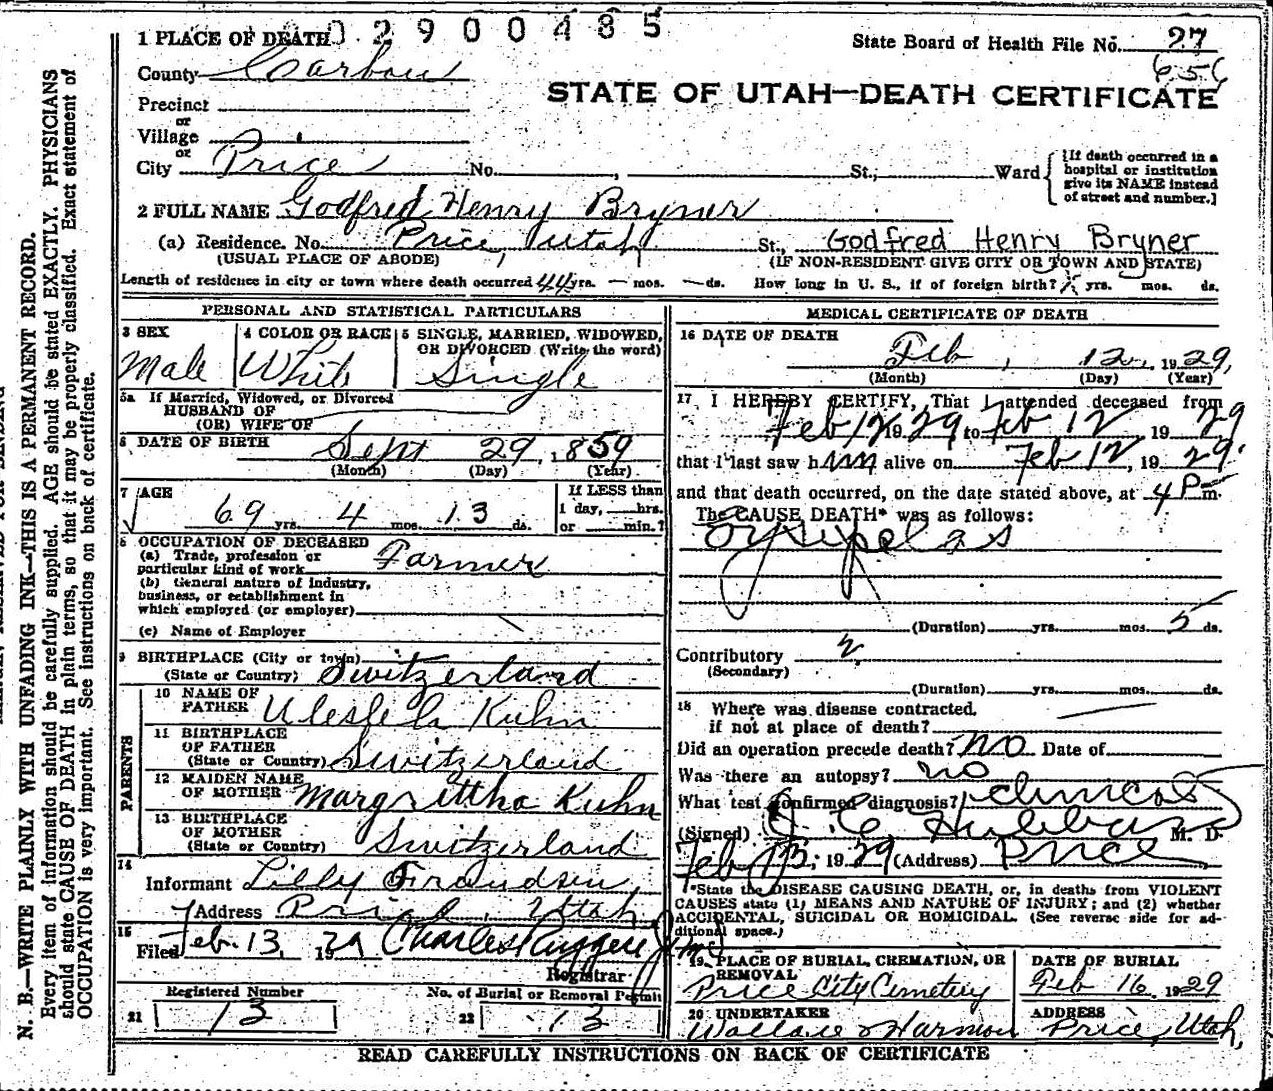 02900485
1 PLACE OF DEATH
State Board of Health File No. 27
656
County Carbon
STATE OF UTAH—DEATH CERTIFICATE
Precinct
or
Village
or
City Price No. , St., Ward
[If death occurred in a
hospital or institution
give its NAME instead
of street and number.]
2 FULL NAME Godfred Henry Bryner
(a) Residence. No. Price, Utah St., Godfred Henry Bryner
(USUAL PLACE OF ABODE) (IF NON-RESIDENT GIVE CITY OR TOWN AND STATE)
Length of residence in city or town where death occurred 44 yrs. — mos. — ds. How long in U. S., if of foreign birth? yrs. mos. ds.
PERSONAL AND STATISTICAL PARTICULARS
3 SEX
Male
4 COLOR OR RACE
White
5 SINGLE, MARRIED, WIDOWED,
OR DIVORCED (Write the word)
Single
5a If Married, Widowed, or Divorced
HUSBAND OF
(OR) WIFE OF
6 DATE OF BIRTH Sept 29, 1859
(Month) (Day) (Year)
7 AGE
69 yrs. 4 mos. 13 ds.
If LESS than
1 day, hrs.
or min.?
8 OCCUPATION OF DECEASED
(a) Trade, profession or
particular kind of work Farmer
(b) General nature of industry,
business, or establishment in
which employed (or employer)
(c) Name of Employer
9 BIRTHPLACE (City or town)
(State or Country) Switzerland
PARENTS
10 NAME OF
FATHER Kuhn
11 BIRTHPLACE
OF FATHER
(State or Country) Switzerland
12 MAIDEN NAME
OF MOTHER Margrittha Kuhn
13 BIRTHPLACE
OF MOTHER
(State or Country) Switzerland
14
Informant Lilly Frandsen
Address Price, Utah
15
Filed Feb. 13, 1929 Charles Ruggeri
Registrar
Registered Number
21 13
No. of Burial or Removal Permit
22 13
MEDICAL CERTIFICATE OF DEATH
16 DATE OF DEATH
Feb, 12, 1929,
(Month) (Day) (Year)
17 I HEREBY CERTIFY, That I attended deceased from
Feb 12 1929 to Feb 12 1929
that I last saw him alive on Feb 12, 1929.
and that death occurred, on the date stated above, at 4 P m.
The CAUSE DEATH* was as follows:
(Duration) yrs. mos. 5 ds.
Contributory
(Secondary)
(Duration) yrs. mos. ds.
18 Where was disease contracted
if not at place of death?
Did an operation precede death? no Date of
Was there an autopsy? no
What test confirmed diagnosis? clinical
(Signed) J. C. Hubbard M. D.
Feb 1929 (Address) Price
*State the DISEASE CAUSING DEATH, or, in deaths from VIOLENT
CAUSES state (1) MEANS AND NATURE OF INJURY; and (2) whether
ACCIDENTAL, SUICIDAL OR HOMICIDAL. (See reverse side for ad-
ditional space.)
19 PLACE OF BURIAL, CREMATION, OR
REMOVAL
Price City Cemetery
DATE OF BURIAL
Feb 16 1929
20 UNDERTAKER
Wallace & Harmon
ADDRESS
Price, Utah,
READ CAREFULLY INSTRUCTIONS ON BACK OF CERTIFICATE
N. B.—WRITE PLAINLY WITH UNFADING INK—THIS IS A PERMANENT RECORD.
Every item of information should be carefully supplied. AGE should be stated EXACTLY. PHYSICIANS
should state CAUSE OF DEATH in plain terms, so that it may be properly classified. Exact statement of
OCCUPATION is very important. See instructions on back of certificate.